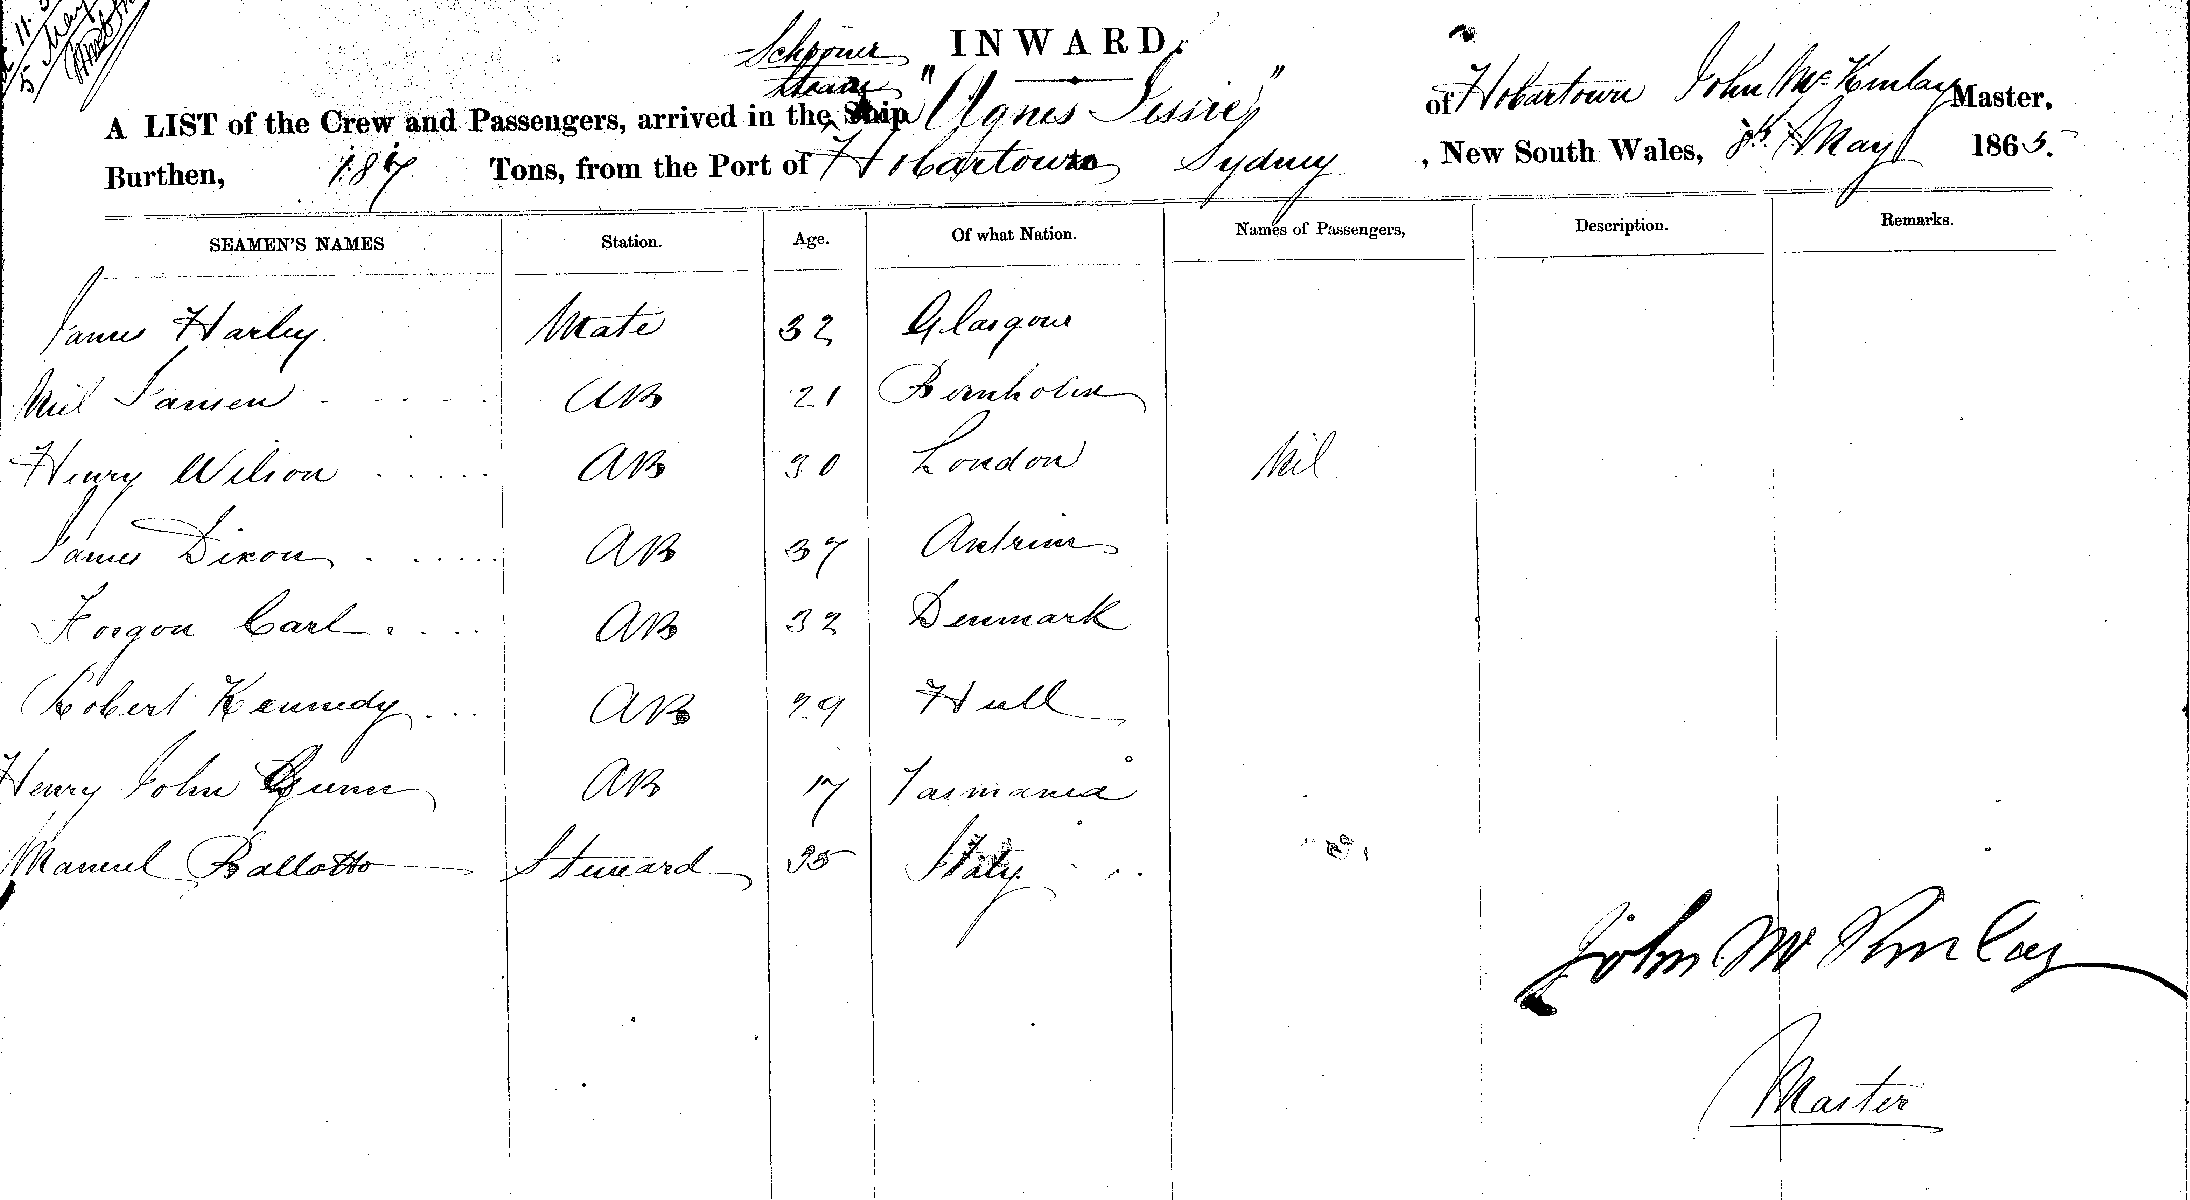 Schooner INWARD.
A LIST of the Crew and Passengers, arrived in the Ship "Agnes Jessie" of Hobartown John McKinlay Master,
Burthen, 187 Tons, from the Port of Hobartown Sydney, New South Wales, 8th May 1865.
SEAMEN'S NAMES Station. Age. Of what Nation. Names of Passengers, Description. Remarks.
James Harley. Mate 32 Glasgow
Niel Jansen AB 21 Bornholm
Henry Wilson AB 30 London Nil
James Dixon AB 37 Antrim
Forgon Carl AB 32 Denmark
Robert Kennedy AB 29 Hull
Henry John Gunn AB 17 Tasmania
Manuel Ballotto Steward 35 Italy
John McKinlay
Master